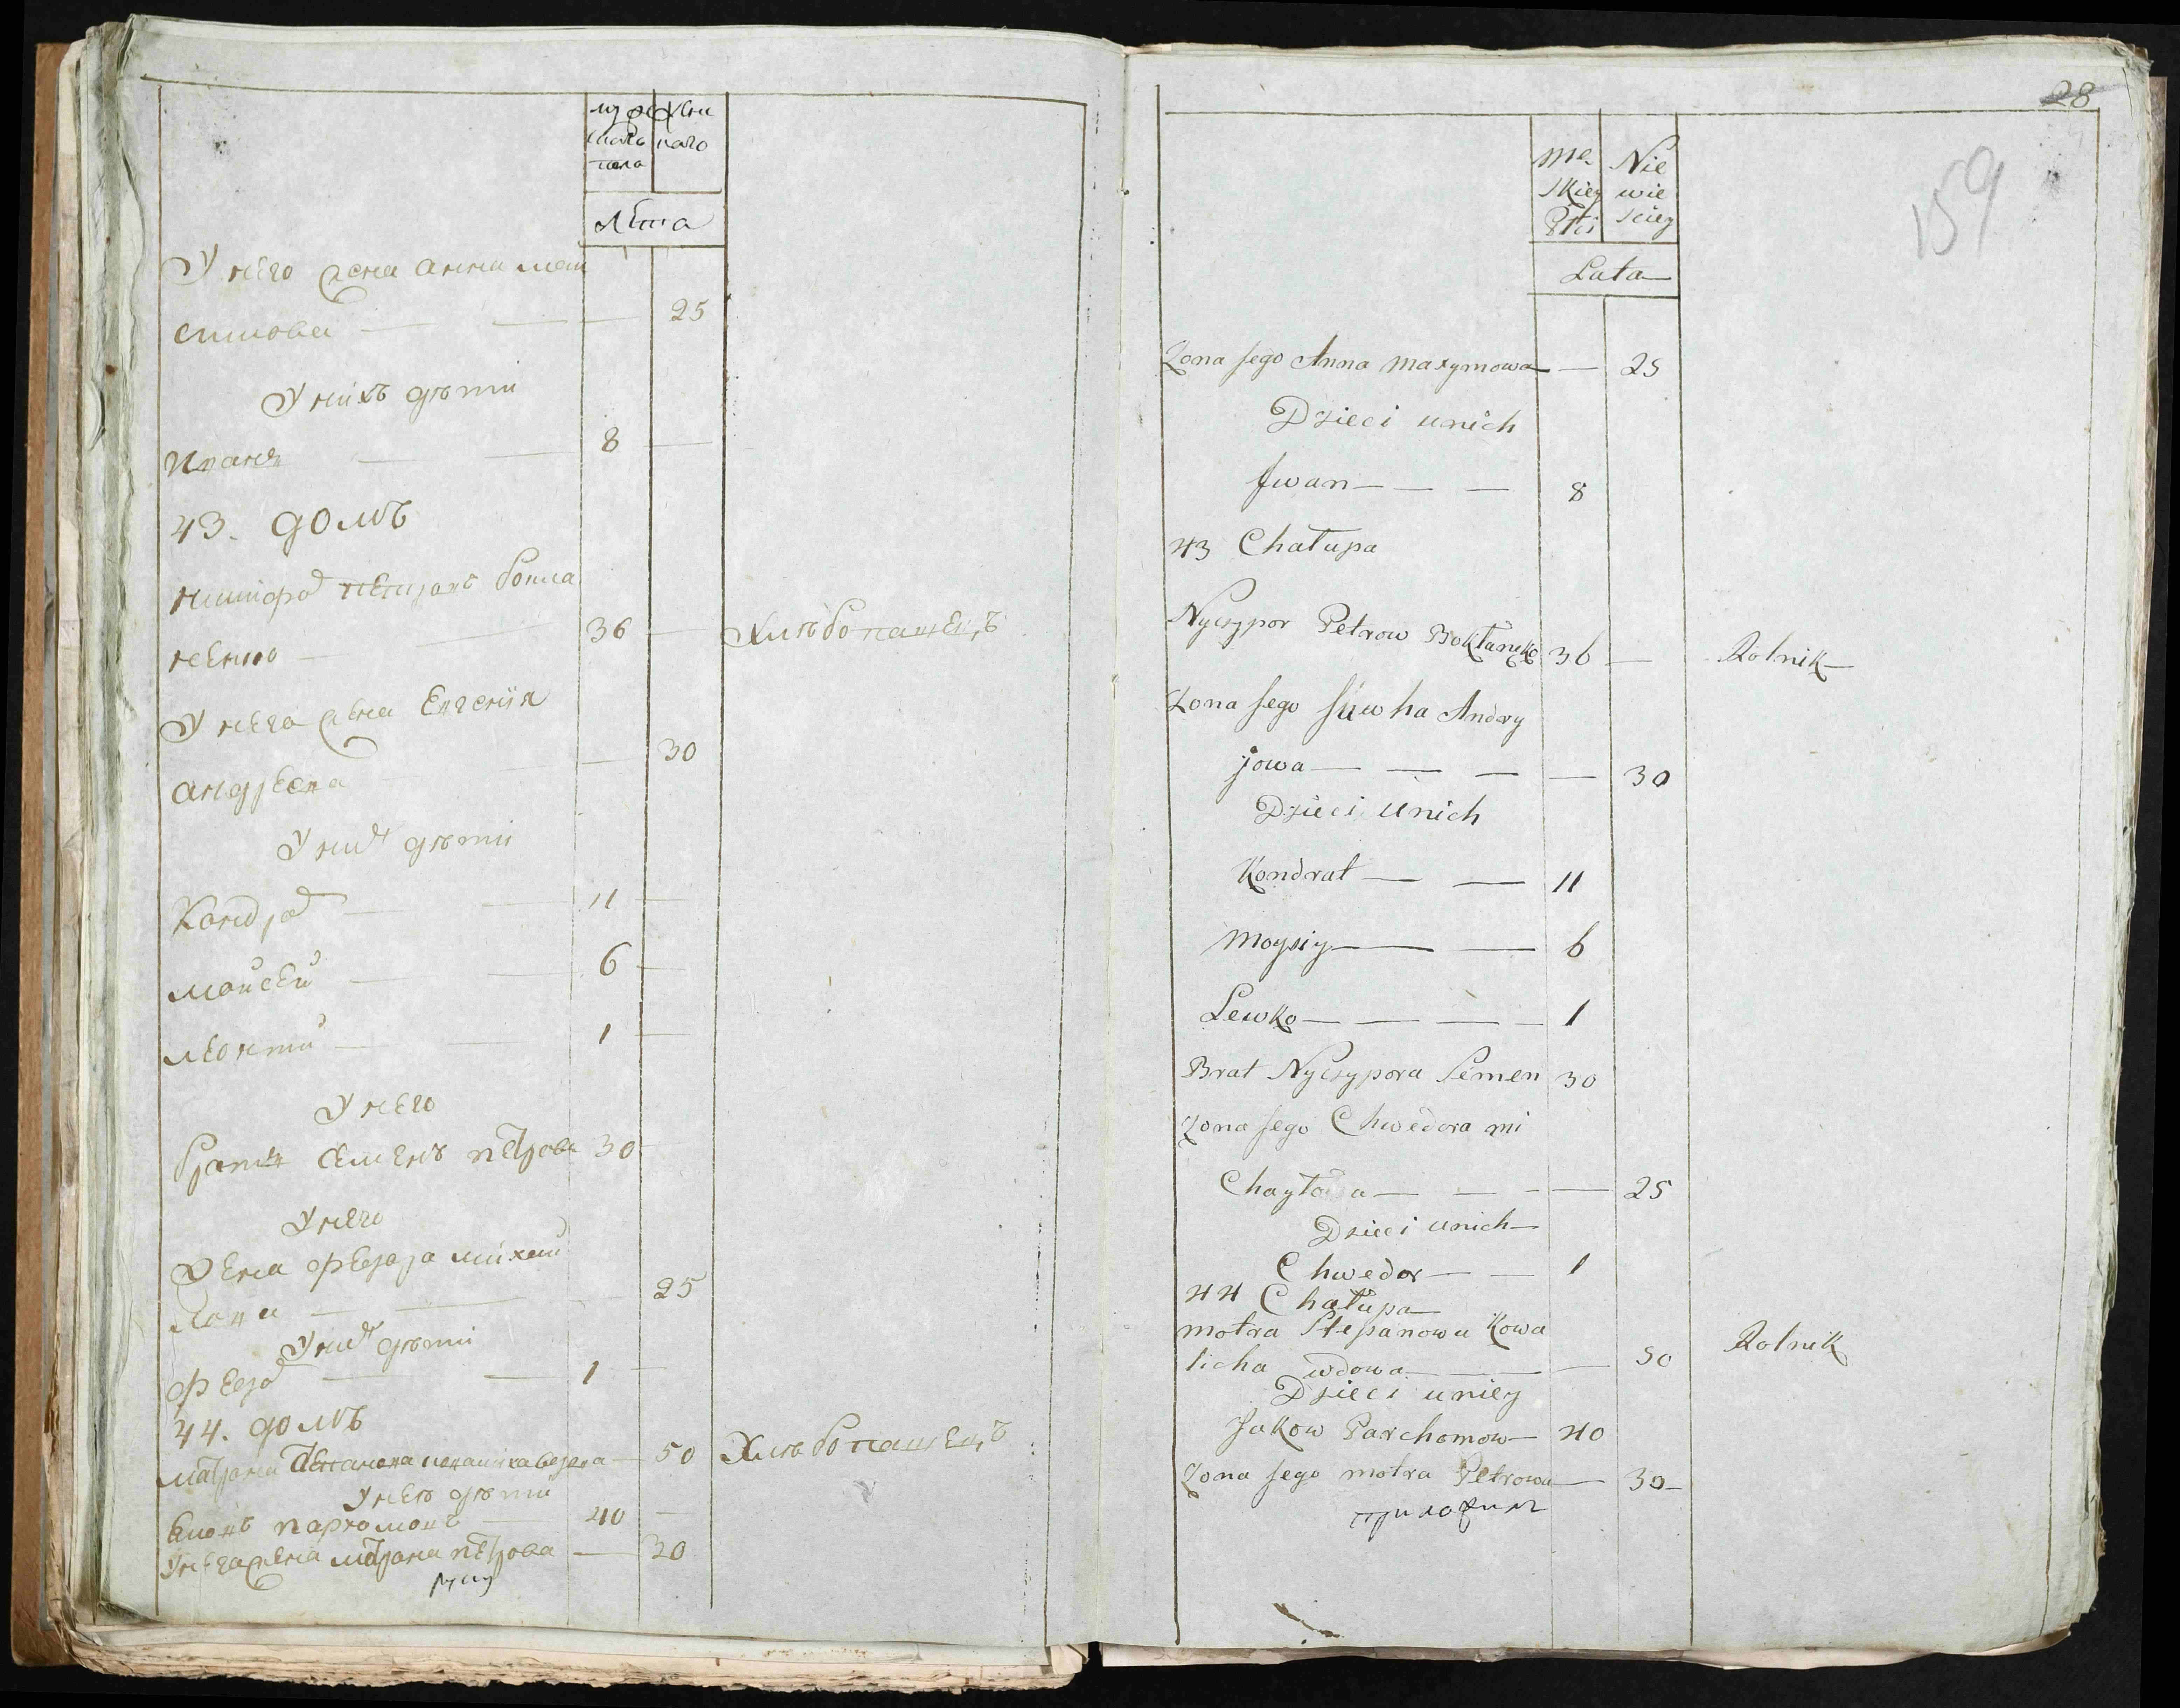 муже жен
ска наго
пола
лѣта
У него жена анна мак
симова — — — 25
У нихъ дѣти
Иванъ — — 8 —
43. домъ
никифоръ петровъ бокла
ненко — — 36 — Хлѣбопашецъ
У него жена Евгенія
андреева — — — 30
У них дѣти
Кондрат — — 11 —
мойсей — — 6 —
леонтий — — 1 —
У него
братъ семенъ петровъ 30 —
У него
жена федора михай
лова — — — 25
У них дѣти
федор — — 1 —
44. домъ
матрона степанова ковалиха вдова — 50 Хлѣбопашецъ
У нея дѣти
яковъ пархомовъ — 40 —
У него жена матрона петрова — 30
руку
28
159
Mę Nie
skiey wie
Płci sciey
Lata
Zona jego Anna Maxymowa — 25
Dzieci unich
Jwan — — — 8
43 Chałupa
Nyczypor Petrow Bokłanęko 36 — Rolnik —
Zona jego Jiwha Andry
jowa — — — — 30
Dzieci unich
Kondrat — — 11
Moysiy — — 6
Lewko — — — — 1
Brat Nyczypora Semen 30
Zona jego Chwedora Mi
Chayłowa — — - — 25
Dzieci unich —
Chwedor — — 1
44 Chałupa —
Motra Stepanowa Kowa
licha wdowa — — 50 Rolnik
Dzieci uniey
Jakow Parchomow — 40
Zona jego Motra Petrowa — 30 —
приложил